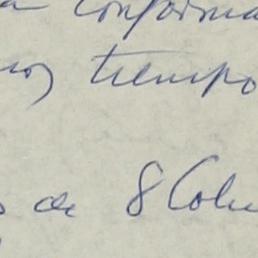 a conforma
nos tiempo
s de 8 Colu